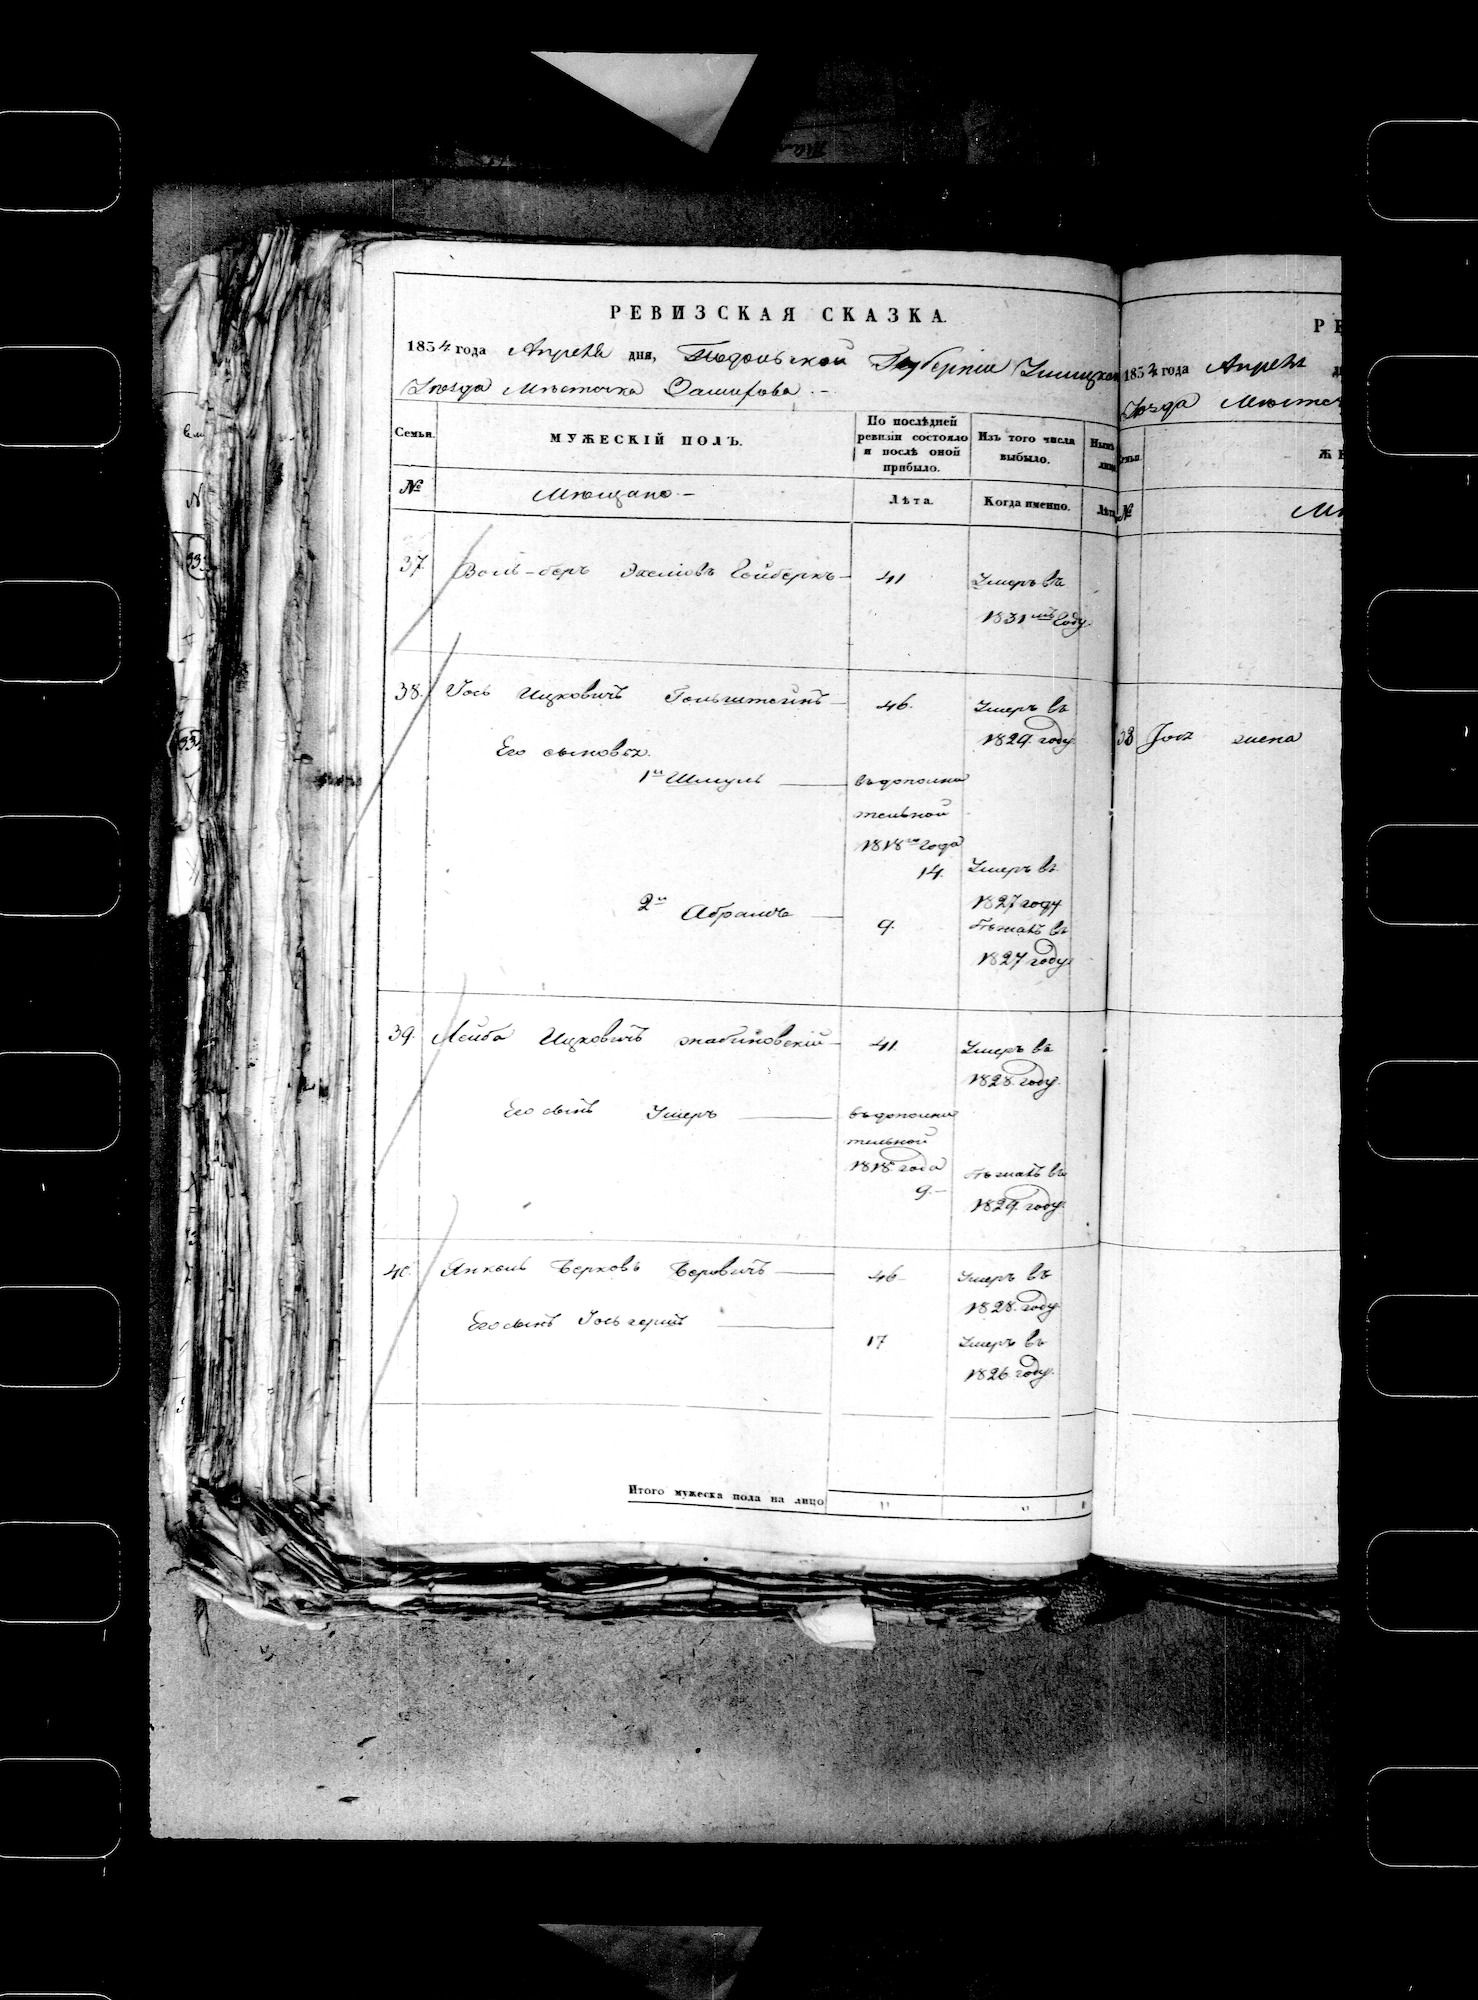 РЕВИЗСКАЯ СКАЗКА.
1834 года Апреля дня, Подольской Губернiи Ушицкаго
Уѣзда Мѣстечка Замихова
Семьи.
МУЖЕСКІЙ ПОЛЪ.
По послѣдней ревизіи состояло и послѣ оной прибыло.
Изъ того числа выбыло.
№
Мѣщане
Лѣта.
Когда именно.
Лѣта
37
Воль-беръ
41
Умеръ въ
1831мъ году.
38.
Іось Ицковичъ Гольштейнъ
46.
Умеръ въ
1829. году
Его сыновья.
1й Шмуль
въ дополни
тельной
1818го года
14.
Умеръ въ
1827 году
2й Абрамъ
9.
Бѣжалъ въ
1827 году
39.
Лейба Ицковичъ
41
Умеръ въ
1828. году.
Его сынъ Ушеръ
въ дополни
тельной
1818. года
9.
Бѣжалъ въ
1829. году.
40.
Янкель Берковъ Беровичъ
46
Умеръ въ
1828. году
Его сынъ Іось герш
17
Умеръ въ
1826. году.
Итого мужеска пола на лицо
РЕ
1834 года Апреля
Уѣзда Мѣстеч
№
38 Іося жена